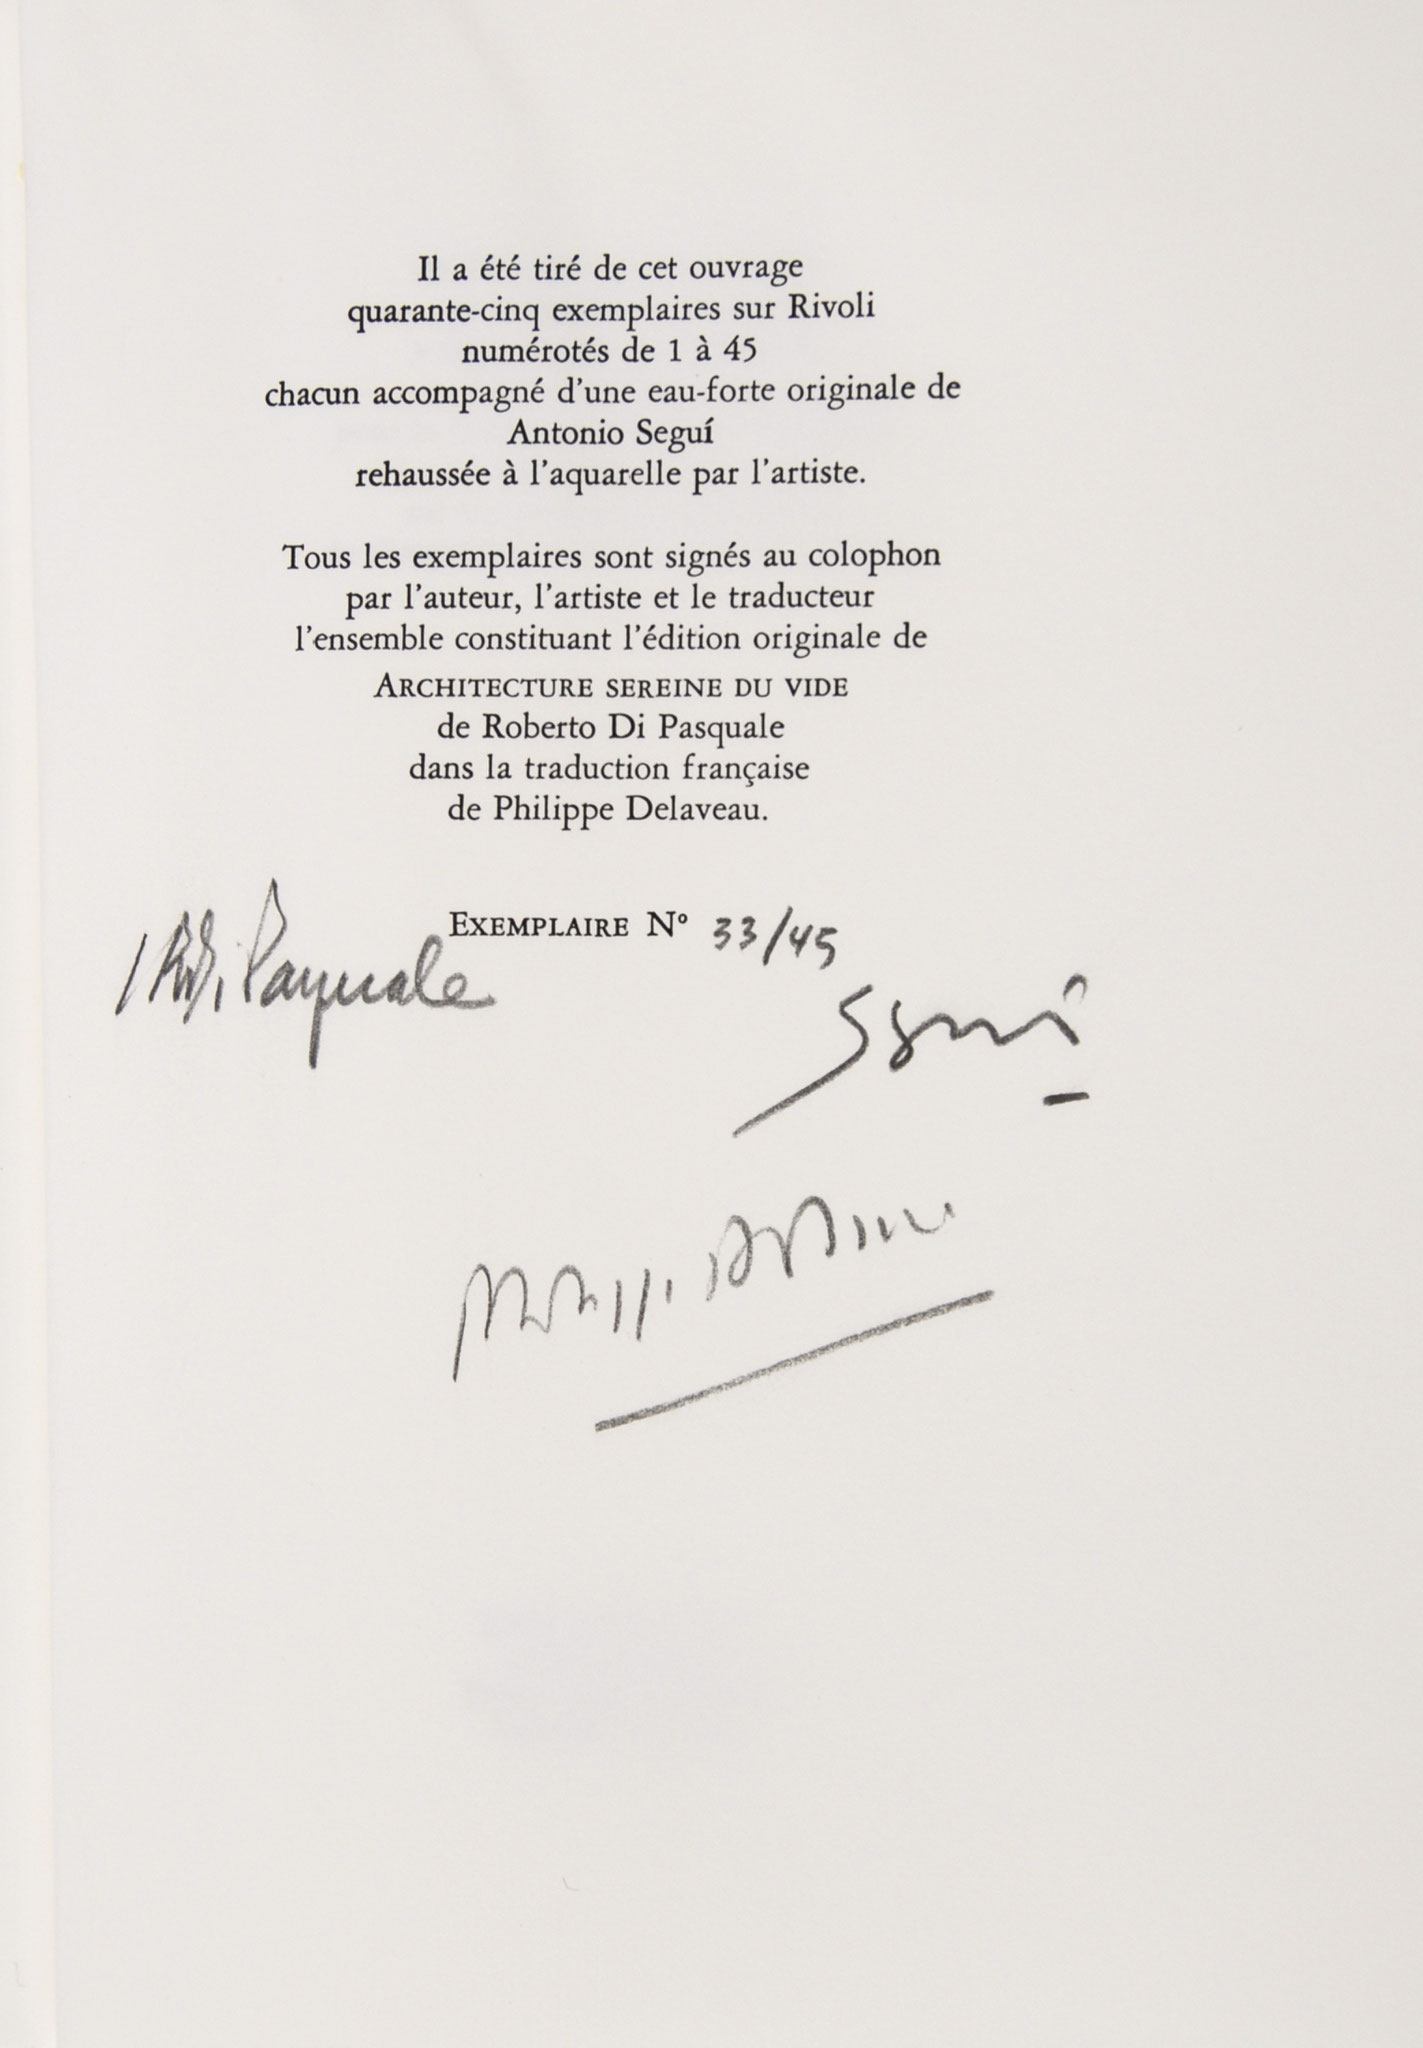 Il a été tiré de cet ouvrage
quarante-cinq exemplaires sur Rivoli
numérotés de 1 à 45
chacun accompagné d'une eau-forte originale de
Antonio Seguí
rehaussée à l'aquarelle par l'artiste.
Tous les exemplaires sont signés au colophon
par l'auteur, l'artiste et le traducteur
l'ensemble constituant l'édition originale de
ARCHITECTURE SEREINE DU VIDE
de Roberto Di Pasquale
dans la traduction française
de Philippe Delaveau.
EXEMPLAIRE Nº 33/45
Pasquale
Seguí